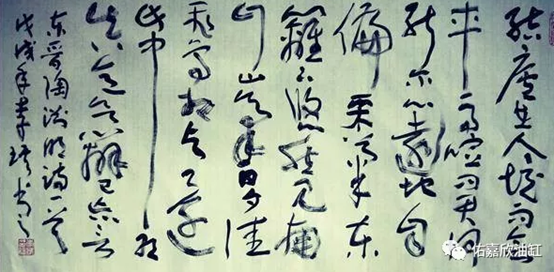 結廬在人境而無
車馬喧问君何
能尔心遠地自
偏采菊东
籬下悠然见南
山山气日夕佳
飛鳥相与还
此中有
真意欲辨已忘言
东晋陶渊明诗一首
戊戌年李书
佑嘉欣油缸